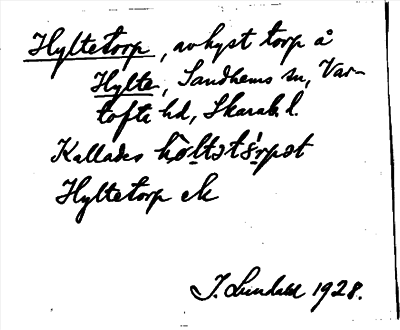 Hyltetorp, avhyst torp å
Hylte, Sandhems sn, Var-
tofta hd, Skarab. l.
Kallades hø̀ltətɷ̀rpət
Hyltetorp ek
J. Lundahl 1928.